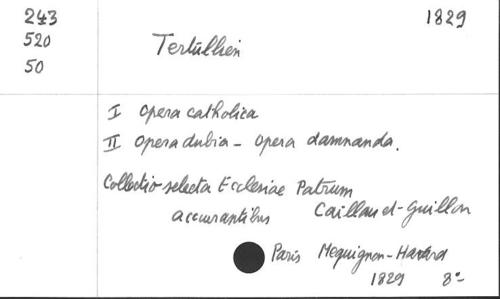 243
520
50
1829
Tertullien
I Opera catholica
II Opera dubia - Opera damnanda.
Collectio selecta Ecclesiae Patrum
accurantibus Caillau et-Guillon
Paris Mequignon-Havard
1829 8°-